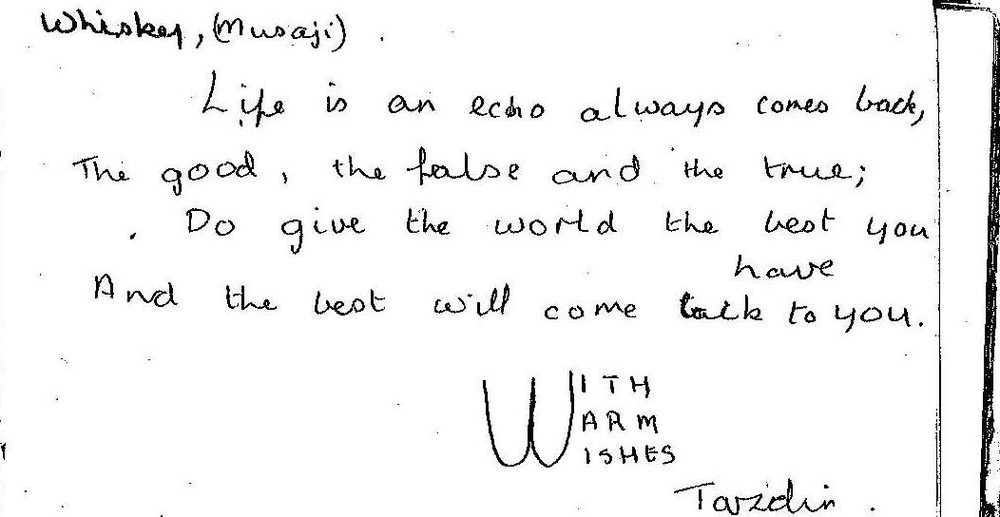 Whiskey, (Musaji).
Life is an echo always comes back,
The good, the false and the true;
Do give the world the best you
have
And the best will come back to you.
WITH
WARM
WISHES
Tazdin.